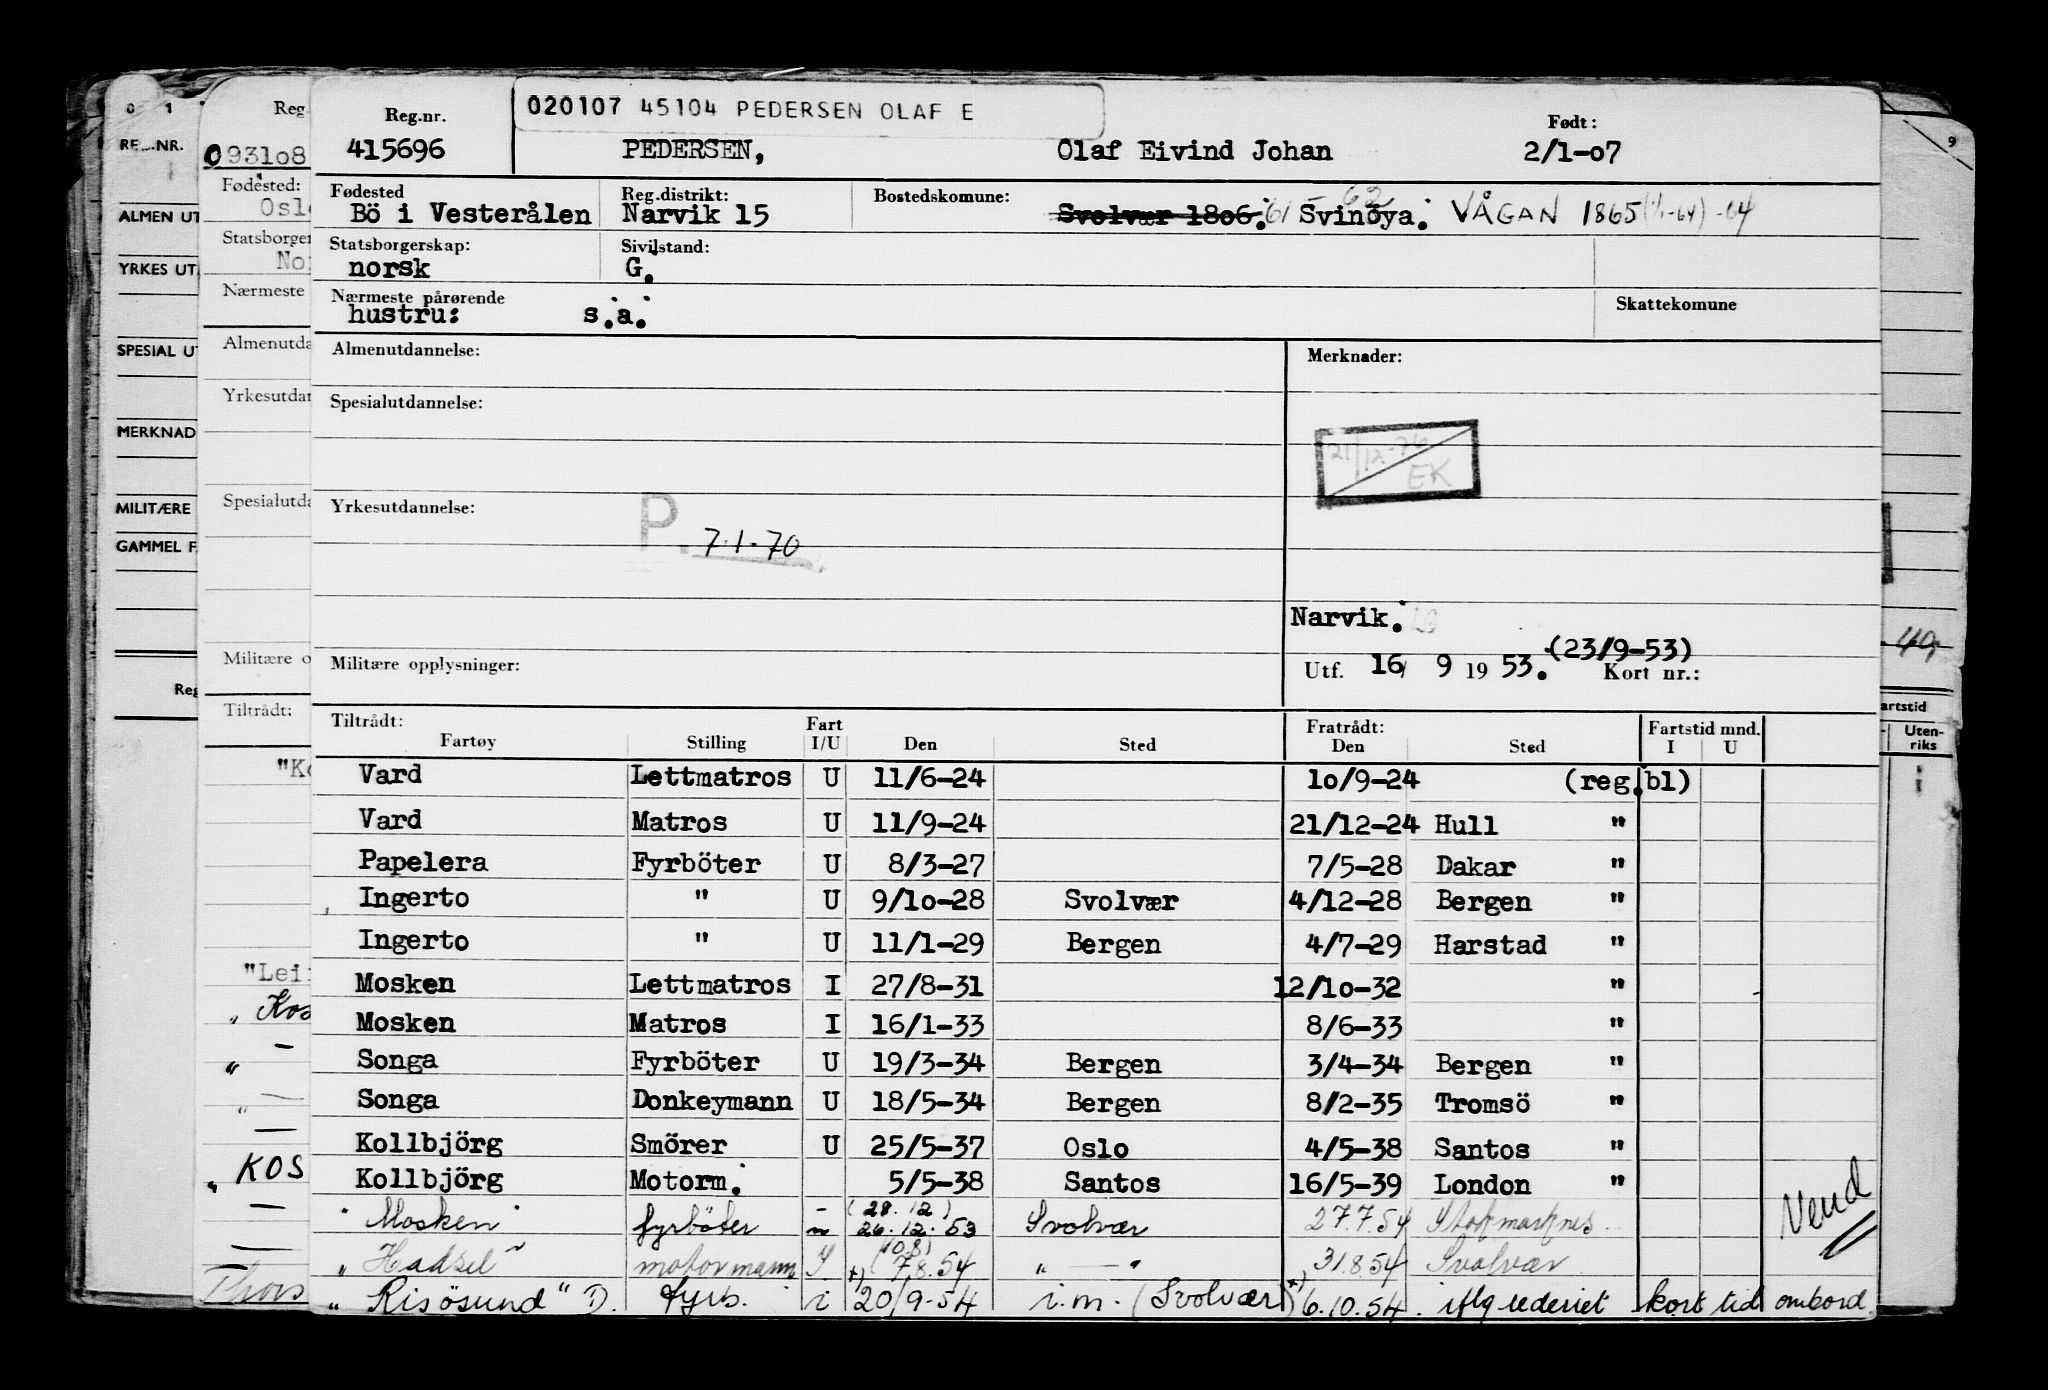 020107 45104 PEDERSEN OLAF E
Reg.nr. Født:
415696 PEDERSEN, Olaf Eivind Johan 2/1-07
Fødested Reg.distrikt: Bostedskomune:
Bö i Vesterålen Narvik 15 Svolvær 1806. 61 - 62 Svinöya. VÅGAN 1865 (1/1-64) -64
Statsborgerskap: Sivilstand:
norsk G.
Nærmeste pårørende Skattekomune
hustru: s.a.
Almenutdannelse: Merknader:
Spesialutdannelse:
21/12-76 EK
Yrkesutdannelse: P. 7.1.70
Narvik.
(23/9-53)
Militære opplysninger: Utf. 16/ 9 19 53. Kort nr.:
Tiltrådt: Fart Fratrådt: Fartstid mnd.
Fartøy Stilling I/U Den Sted Den Sted I U
Vard Lettmatros U 11/6-24 10/9-24 (reg.bl)
Vard Matros U 11/9-24 21/12-24 Hull "
Papelera Fyrböter U 8/3-27 7/5-28 Dakar "
Ingerto " U 9/10-28 Svolvær 4/12-28 Bergen "
Ingerto " U 11/1-29 Bergen 4/7-29 Harstad "
Mosken Lettmatros I 27/8-31 12/10-32 "
Mosken Matros I 16/1-33 8/6-33 "
Songa Fyrböter U 19/3-34 Bergen 3/4-34 Bergen "
Songa Donkeymann U 18/5-34 Bergen 8/2-35 Tromsö "
Kollbjörg Smörer U 25/5-37 Oslo 4/5-38 Santos "
Kollbjörg Motorm. 5/5-38 Santos 16/5-39 London "
Vend
" Mosken " fyrböter - (28.12) 26.12.53 Svolvær 27.7.54 Stokmarknes
" Hadsel " motormann (10.8) 7.8.54 " — " 31.8.54 Svolvær
" Risösund " D. fyrb. i x) 20/9-54 i.m. (Svolvær) x) 6.10.54. iflg rederiet kort tid ombord
0 1
REG.NR.
ALMEN UT
YRKES UT
SPESIAL UT
MERKNAD
MILITÆRE
GAMMEL F
Reg
Reg.
093108
Fødested:
Oslo
Statsborger
Nor
Nærmeste
Almenutda
Yrkesutdan
Spesialutda
Militære o
Tiltrådt:
"Ko
"Lei
" Kos
" —
" —
" KOS
Thors
9
49,
artstid
Uten-
riks